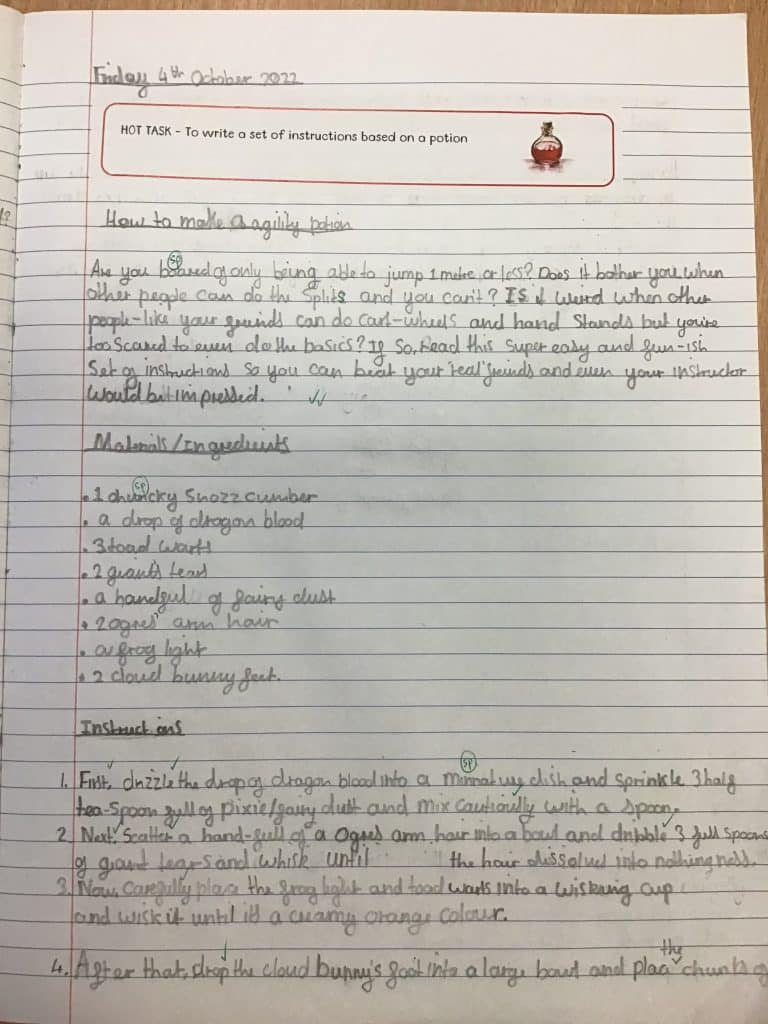 Friday 4th October 2022
HOT TASK - To write a set of instructions based on a potion
How to make a agility potion
sp
Are you boared of only being able to jump 1 metre, or less? Does it bother you, when
other people can do the splits and you can't? Is it weird when other
people-like your freinds can do cart-wheels and hand stands but you're
too scared to even do the basics? If so, Read this super easy and fun-ish
Set of instructions so you can beat your 'real' freinds and even your instructor
would be impressed.
Materials/Ingredients
sp
• 1 chuncky Snozz cumber
• a drop of dragon blood
• 3 toad warts
• 2 giant's tears
• a handful of fairy dust
• 2 ogres' arm hair
• a frog light
• 2 cloud bunny feet.
Instructions
sp
1. First, drizzle the drop of dragon blood into a dish and sprinkle 3 half
tea-spoon full of pixie/fairy dust and mix cautiously with a spoon.
2. Next, Scatter a hand-full of a Ogres arm hair into a bowl and dribble 3 full spoons
of giant tears and whisk until the hair dissolves into nothingness.
3. Now, Carefully place the frog light and toad warts into a wisking cup
and wisk it until it's a creamy orange colour.
the
4. After that, drop the cloud bunny's foot into a large bowl and place chunks of